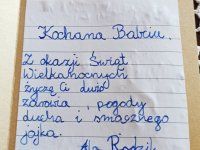 Kochana Babciu.
Z okazji Świąt
Wielkanocnych
życzę Ci dużo
zdrowia, pogody
ducha i smacznego
jajka.
Ala